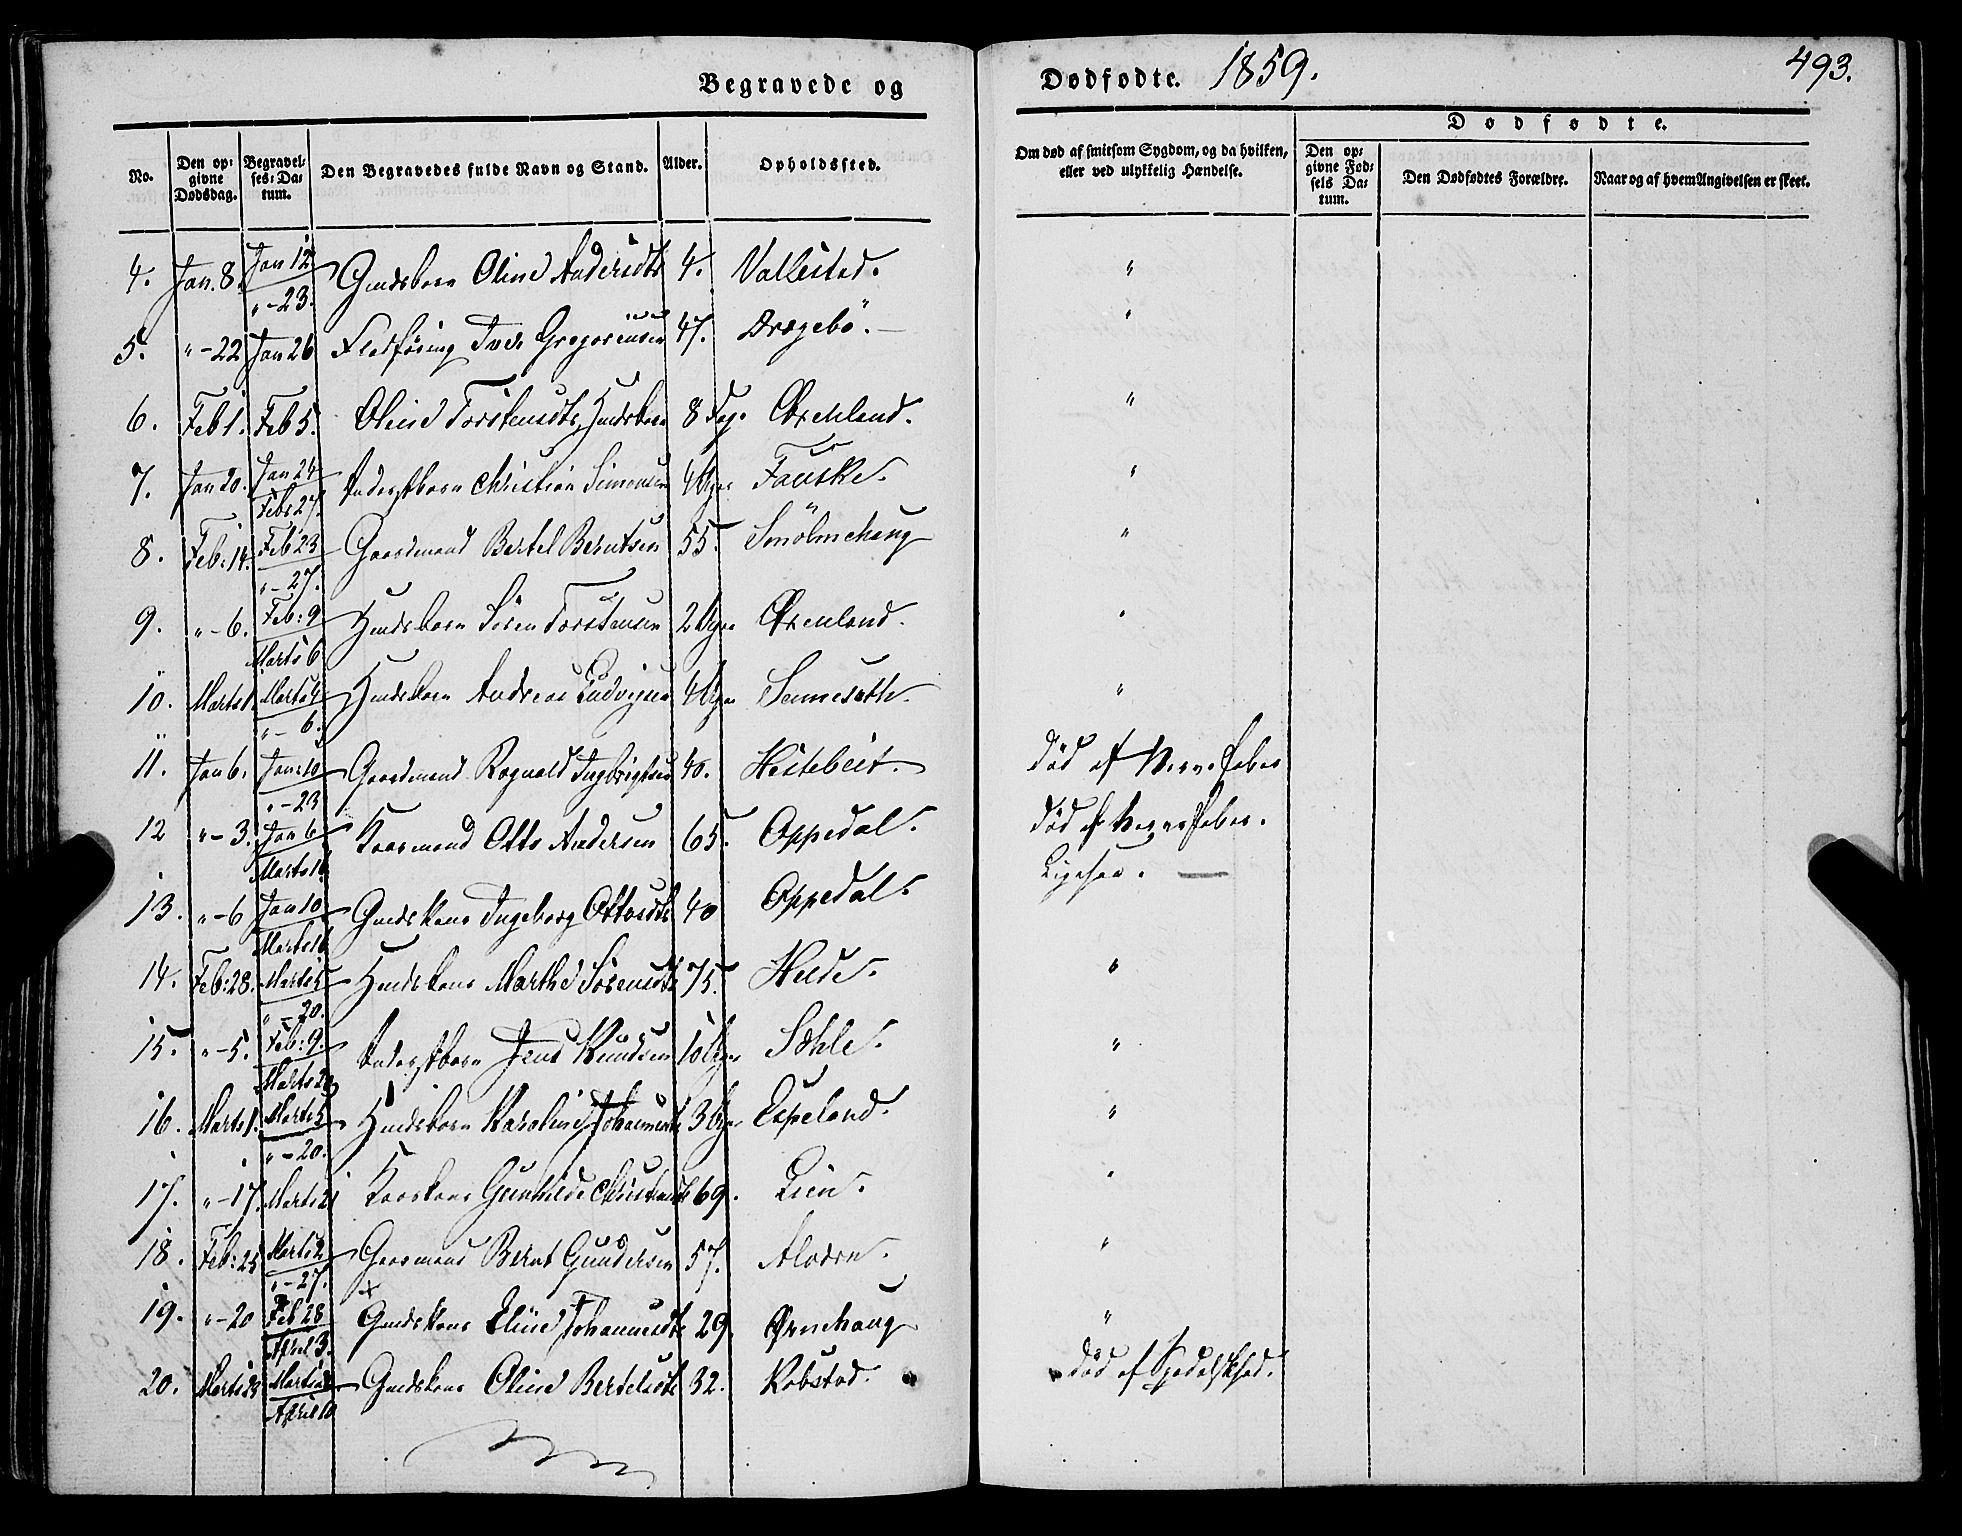 Begravede og
Dødfødte. 1859.
493.
No.
Den opgivne Dødsdag.
Begravelses-Datum.
Den Begravedes fulde Navn og Stand.
Alder.
Opholdssted.
Om død af smitsom Sygdom, og da hvilken, eller ved ulykkelig Hændelse.
Dødfødte.
Den opgivne Fødsels Datum.
Den Dødfødtes Forældre.
Naar og af hvem Angivelsen er skeet.
4. Jan. 8. Jan 12 " - 23. Oline Andersdtr 4. Vallestad. "
5. " - 22 Jan 26 Iver Gregoriussen 47. Drægebö. "
6. Feb 1. Feb 5. Oline Torstensdtr 8 Dage "
7. Jan 20. Jan 24 Febr 27. Christian Simonsen 4 Uger Fauske. "
8. Feb: 14. Feb 23 " - 27. Gaardmand Bertel Berntsen 55. "
9. " - 6. Feb: 9 Marts 6 Sören Torstensen 2 Uger "
10. Marts 1. Marts 4 " - 6. Andreas Ludvigsen 4 Uger "
11. Jan 6. Jan: 10 " - 23 Gaardmand Rognald Ingbrigtsen 40. Hestebeit. död af Nervefeber
12 " - 3. Jan 6 Marts 16 Kaarmand Otto Andersen 65. Oppedal. död af Nervefeber.
13. " - 6 Jan 10 Marts 16 Ingeborg Ottosdtr 40 Oppedal. Ligesaa.
14. Feb: 28. Marts 5 " - 20. Marthe Sörensdtr 75. "
15. " - 5. Feb: 9. Marts 20 Jens Knudsen 10 Uger Sæhle. "
16. Marts 1. Marts 5 " - 20. Karoline Johannesdtr 3 Uger Espeland. "
17. " - 17. Marts 21 Kaarkone Gunhilde 69. Lien. "
18. Feb: 25 Marts 2 " - 27. Gaarmand Bernt Gundersen 57. "
19. " - 20 Feb 28 April 3. Eline Johannesdtr 29. Ørnehaug "
20. Marts Marts April 10 Oline Bertelsdtr 32. Robstad. död af Spedalskhed.